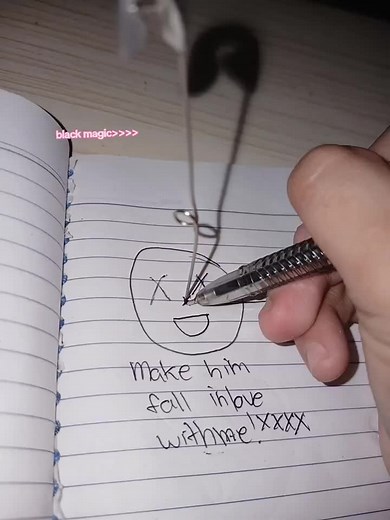 black magic>>>>
make him
fall inlove
with me! XXXX